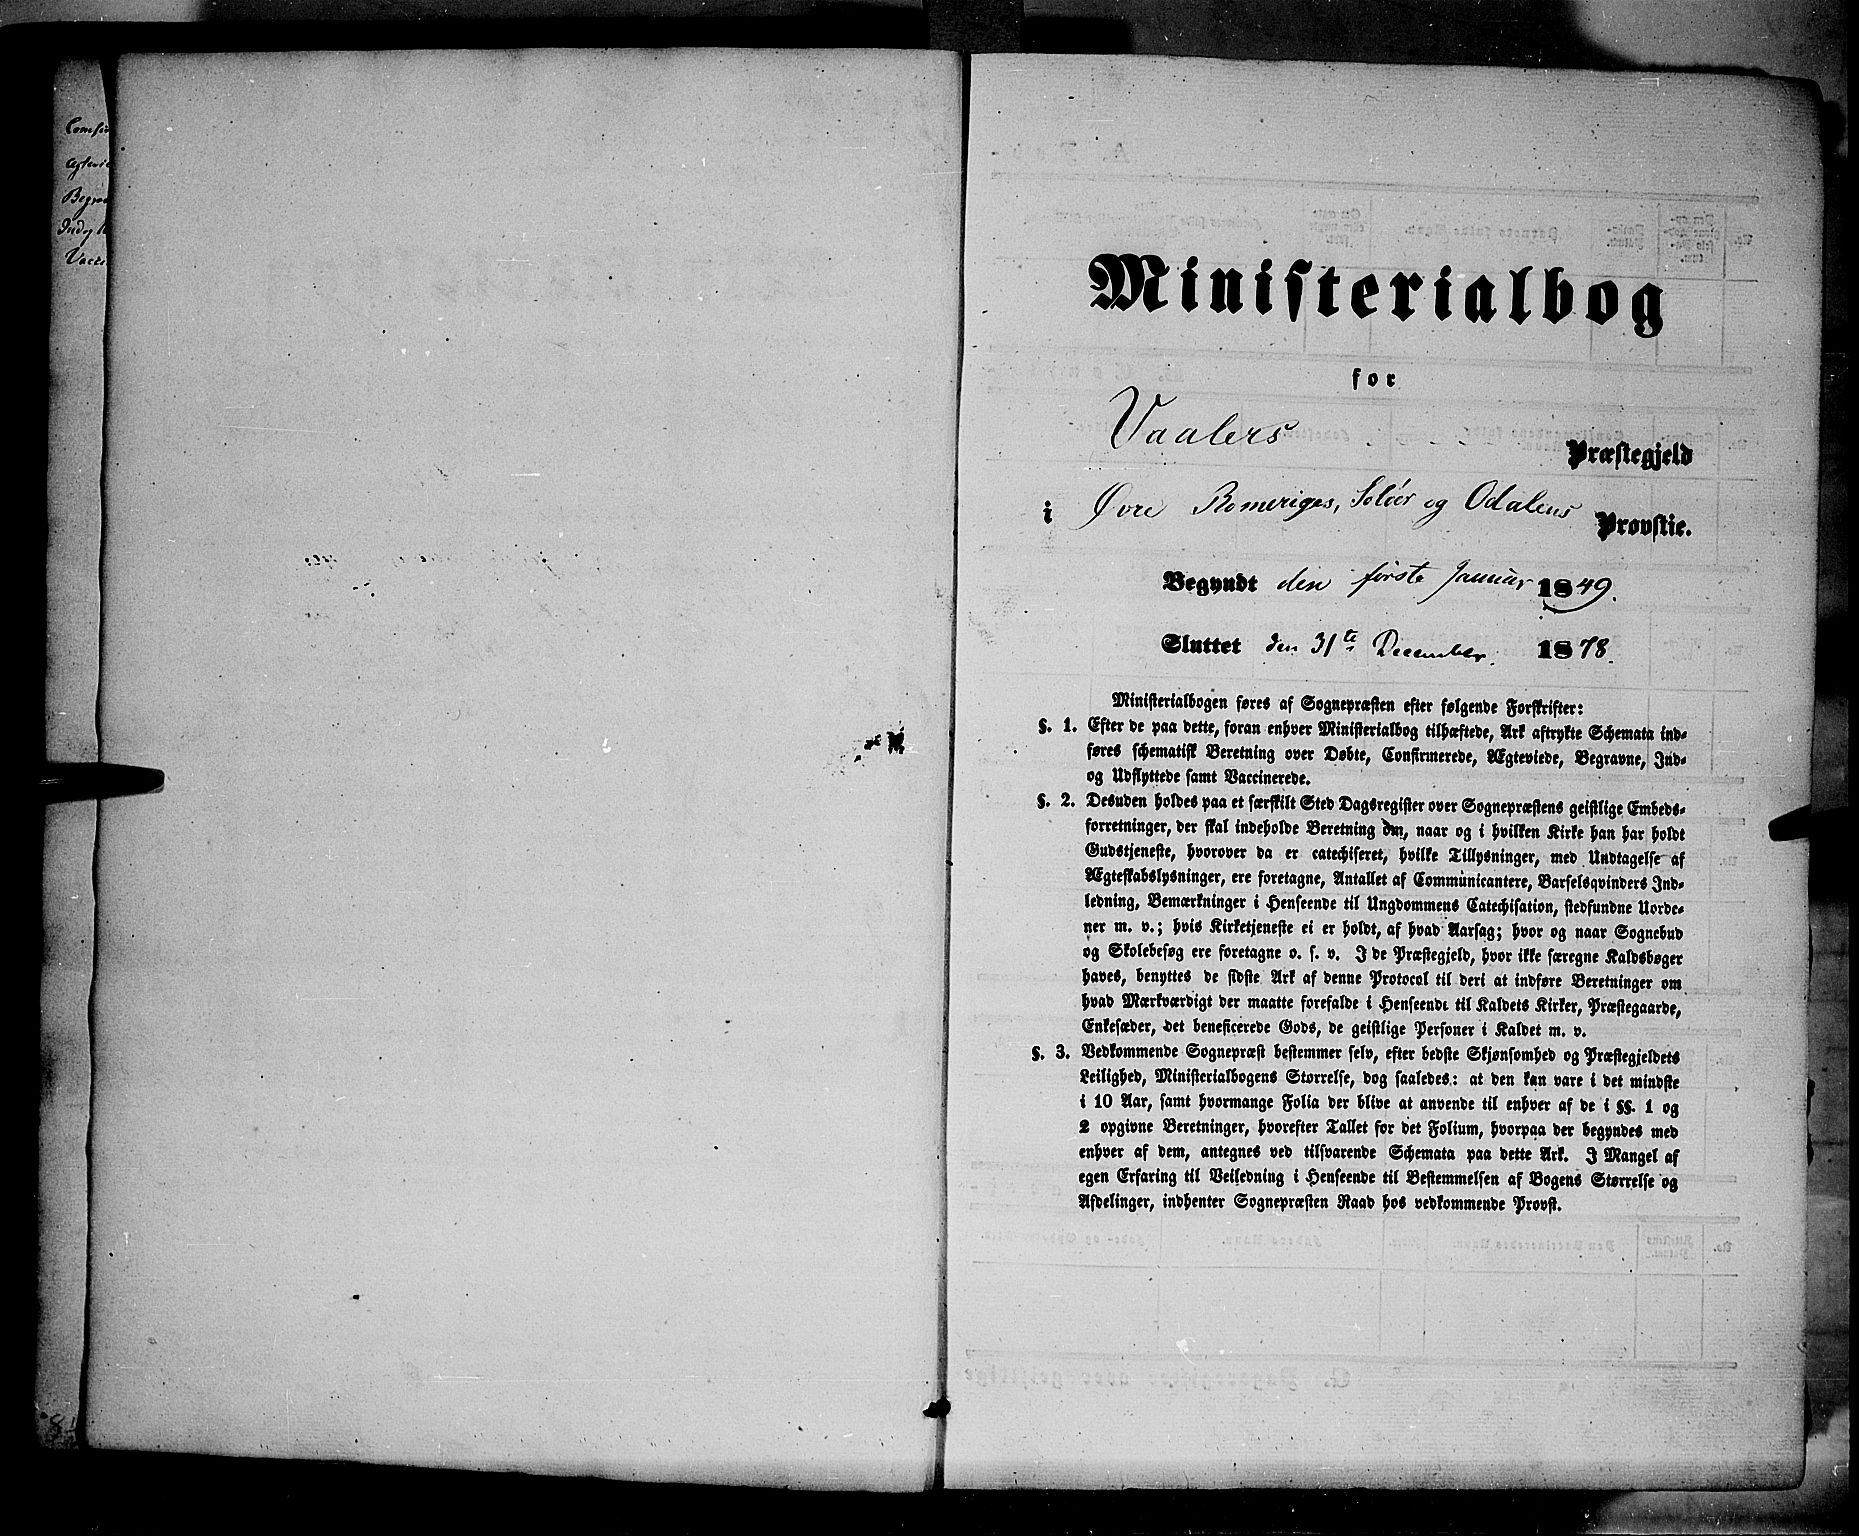 Ministerialbog
for
Vaalers Præstegjeld
i Øvre Romeriges, Soløer og Odalens Provstie.
Begyndt den første Januar 1849.
Sluttet den 31te December. 1878.
Ministerialbogen føres af Sognepræsten efter følgende Forskrifter:
§. 1. Efter de paa dette, foran enhver Ministerialbog tilhæftede, Ark aftrykte Schemata ind-
føres schematisk Beretning over Døbte, Confirmerede, Ægteviede, Begravne, Ind-
og Udflyttede samt Vaccinerede.
§. 2. Desuden holdes paa et særskilt Sted Dagsregister over Sognepræstens geistlige Embeds-
forretninger, der skal indeholde Beretning om, naar og i hvilken Kirke han har holdt
Gudstjeneste, hvorover da er catechiseret, hvilke Tillysninger, med Undtagelse af
Ægteskabslysninger, ere foretagne, Antallet af Communicantere, Barselqvinders Ind-
ledning, Bemærkninger i Henseende til Ungdommens Catechisation, stedfundne Uorde-
ner m. v.; hvis Kirketjeneste ei er holdt, af hvad Aarsag; hvor og naar Sognebud
og Skolebesøg ere foretagne o. s. v. I de Præstegjeld, hvor ikke særegne Kaldsbøger
haves, benyttes de sidste Ark af denne Protocol til deri at indføre Beretninger om
hvad Mærkværdigt der maatte forefalde i Henseende til Kaldets Kirker, Præstegaarde,
Enkesæder, det beneficerede Gods, de geistlige Personer i Kaldet m. v.
§. 3. Vedkommende Sognepræst bestemmer selv, efter bedste Skjønsomhed og Præstegjeldets
Leilighed, Ministerialbogens Størrelse, dog saaledes: at den kan vare i det mindste
i 10 Aar, samt hvormange Folia der blive at anvende til enhver af de i §§. 1 og
2 opgivne Beretninger, hvorefter Tallet for det Folium, hvorpaa der begyndes med
enhver af dem, antegnes ved tilsvarende Schemata paa dette Ark. I Mangel af
egen Erfaring til Veiledning i Henseende til Bestemmelsen af Bogens Størrelse og
Afdelinger, indhenter Sognepræsten Raad hos vedkommende Provst.